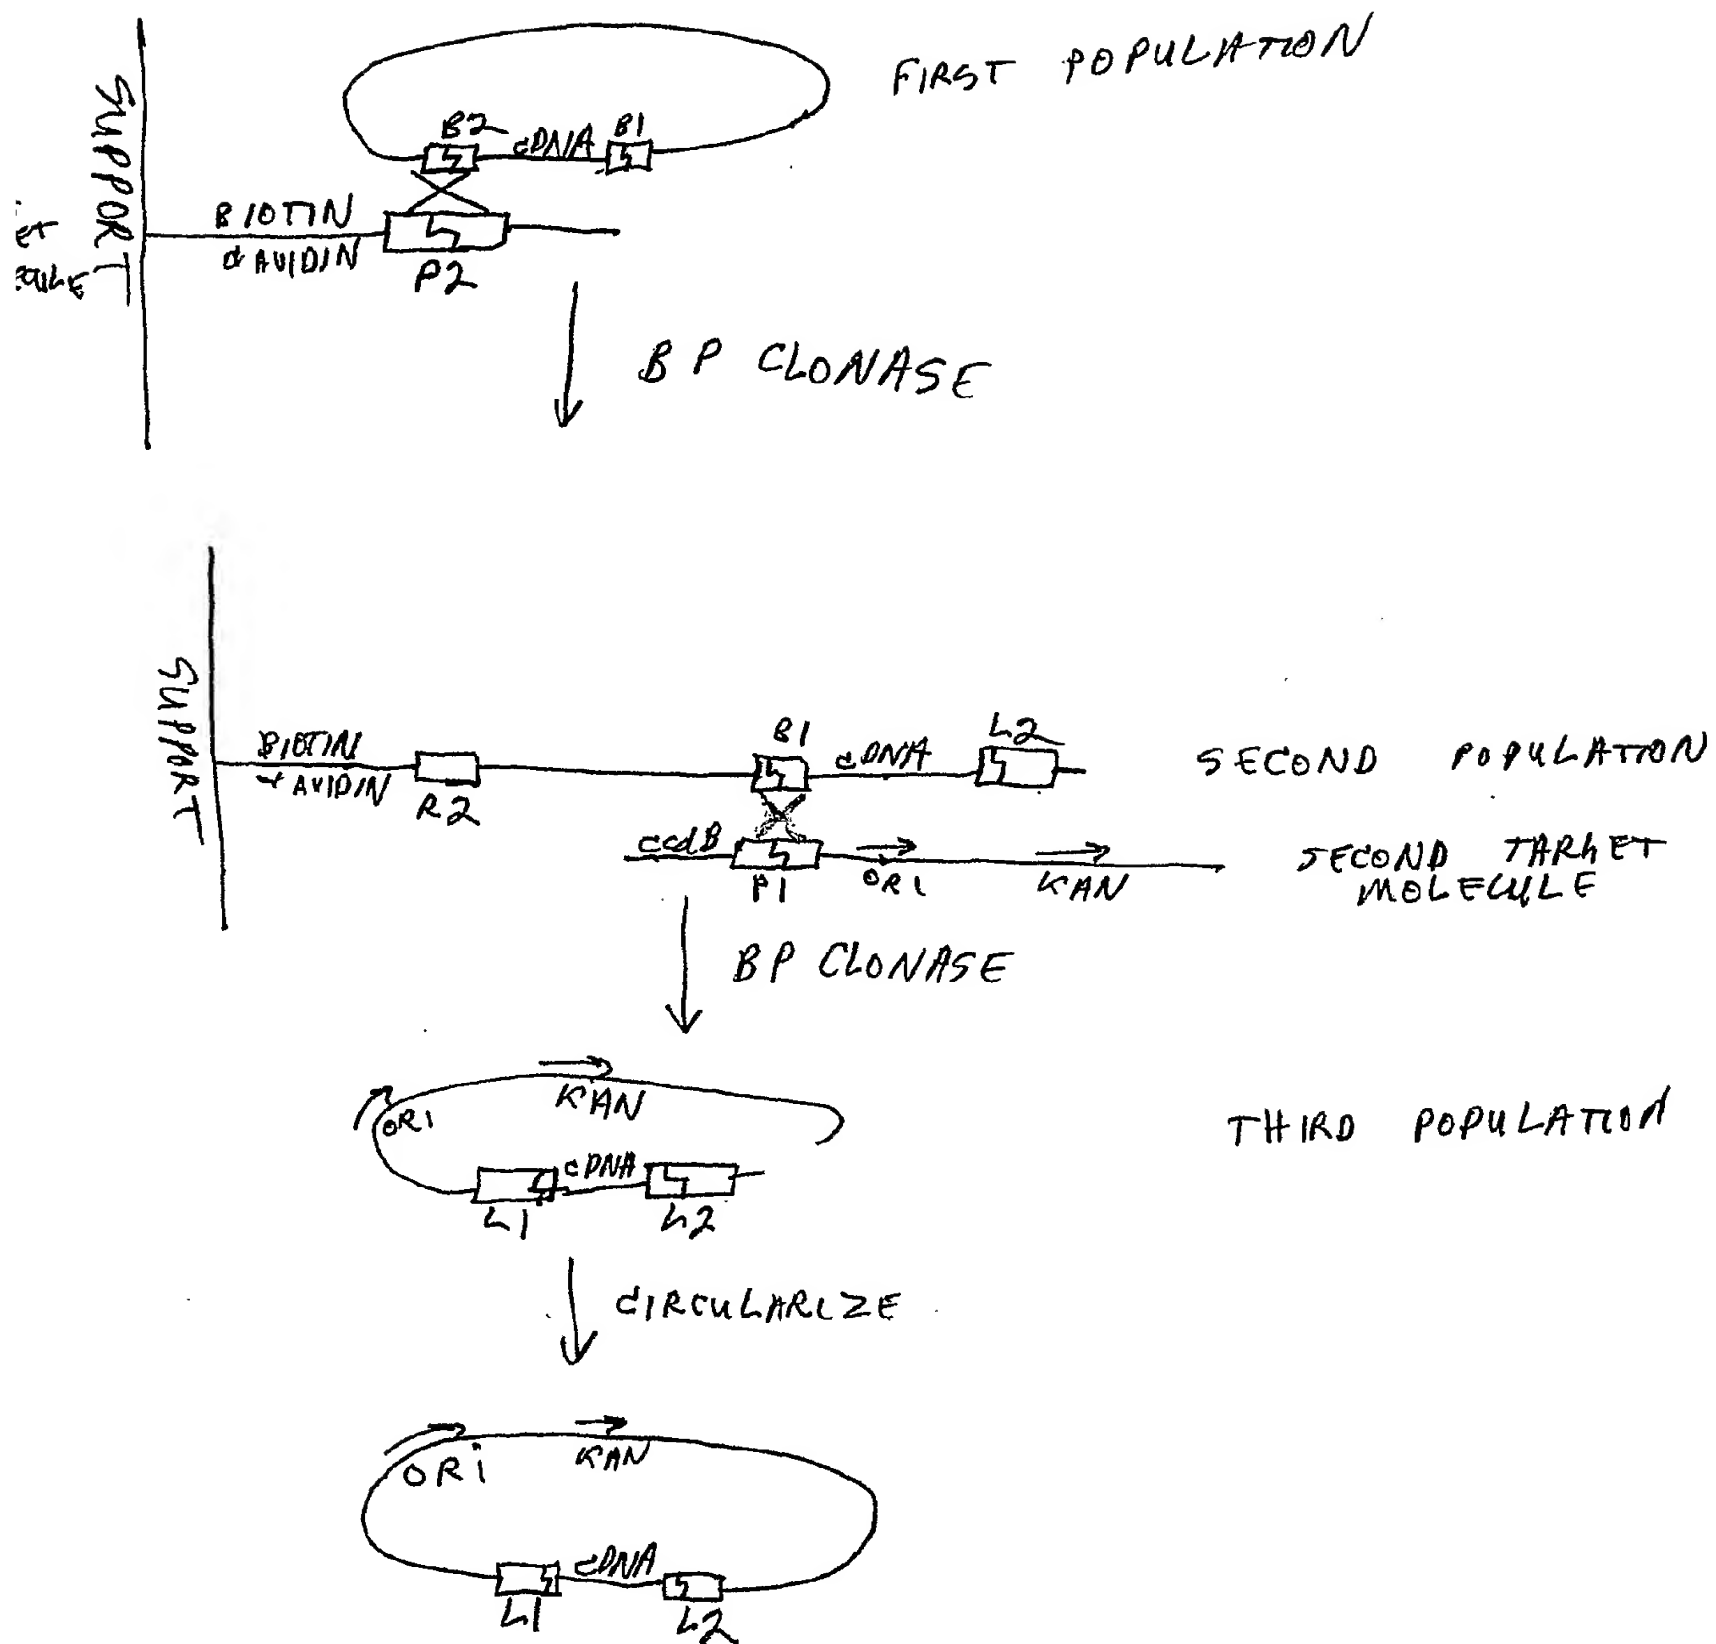 FIRST POPULATION
SUPPORT
B2 cDNA B1
BIOTIN
AVIDIN
P2
ET
BP CLONASE
SUPPORT
BIOTIN
AVIDIN
R2
B1 cDNA L2
SECOND POPULATION
ccdB
P1
ORI
KAN
SECOND TARGET
MOLECULE
BP CLONASE
ORI
KAN
THIRD POPULATION
L1
cDNA
L2
CIRCULARIZE
ORi
KAN
L1
cDNA
L2